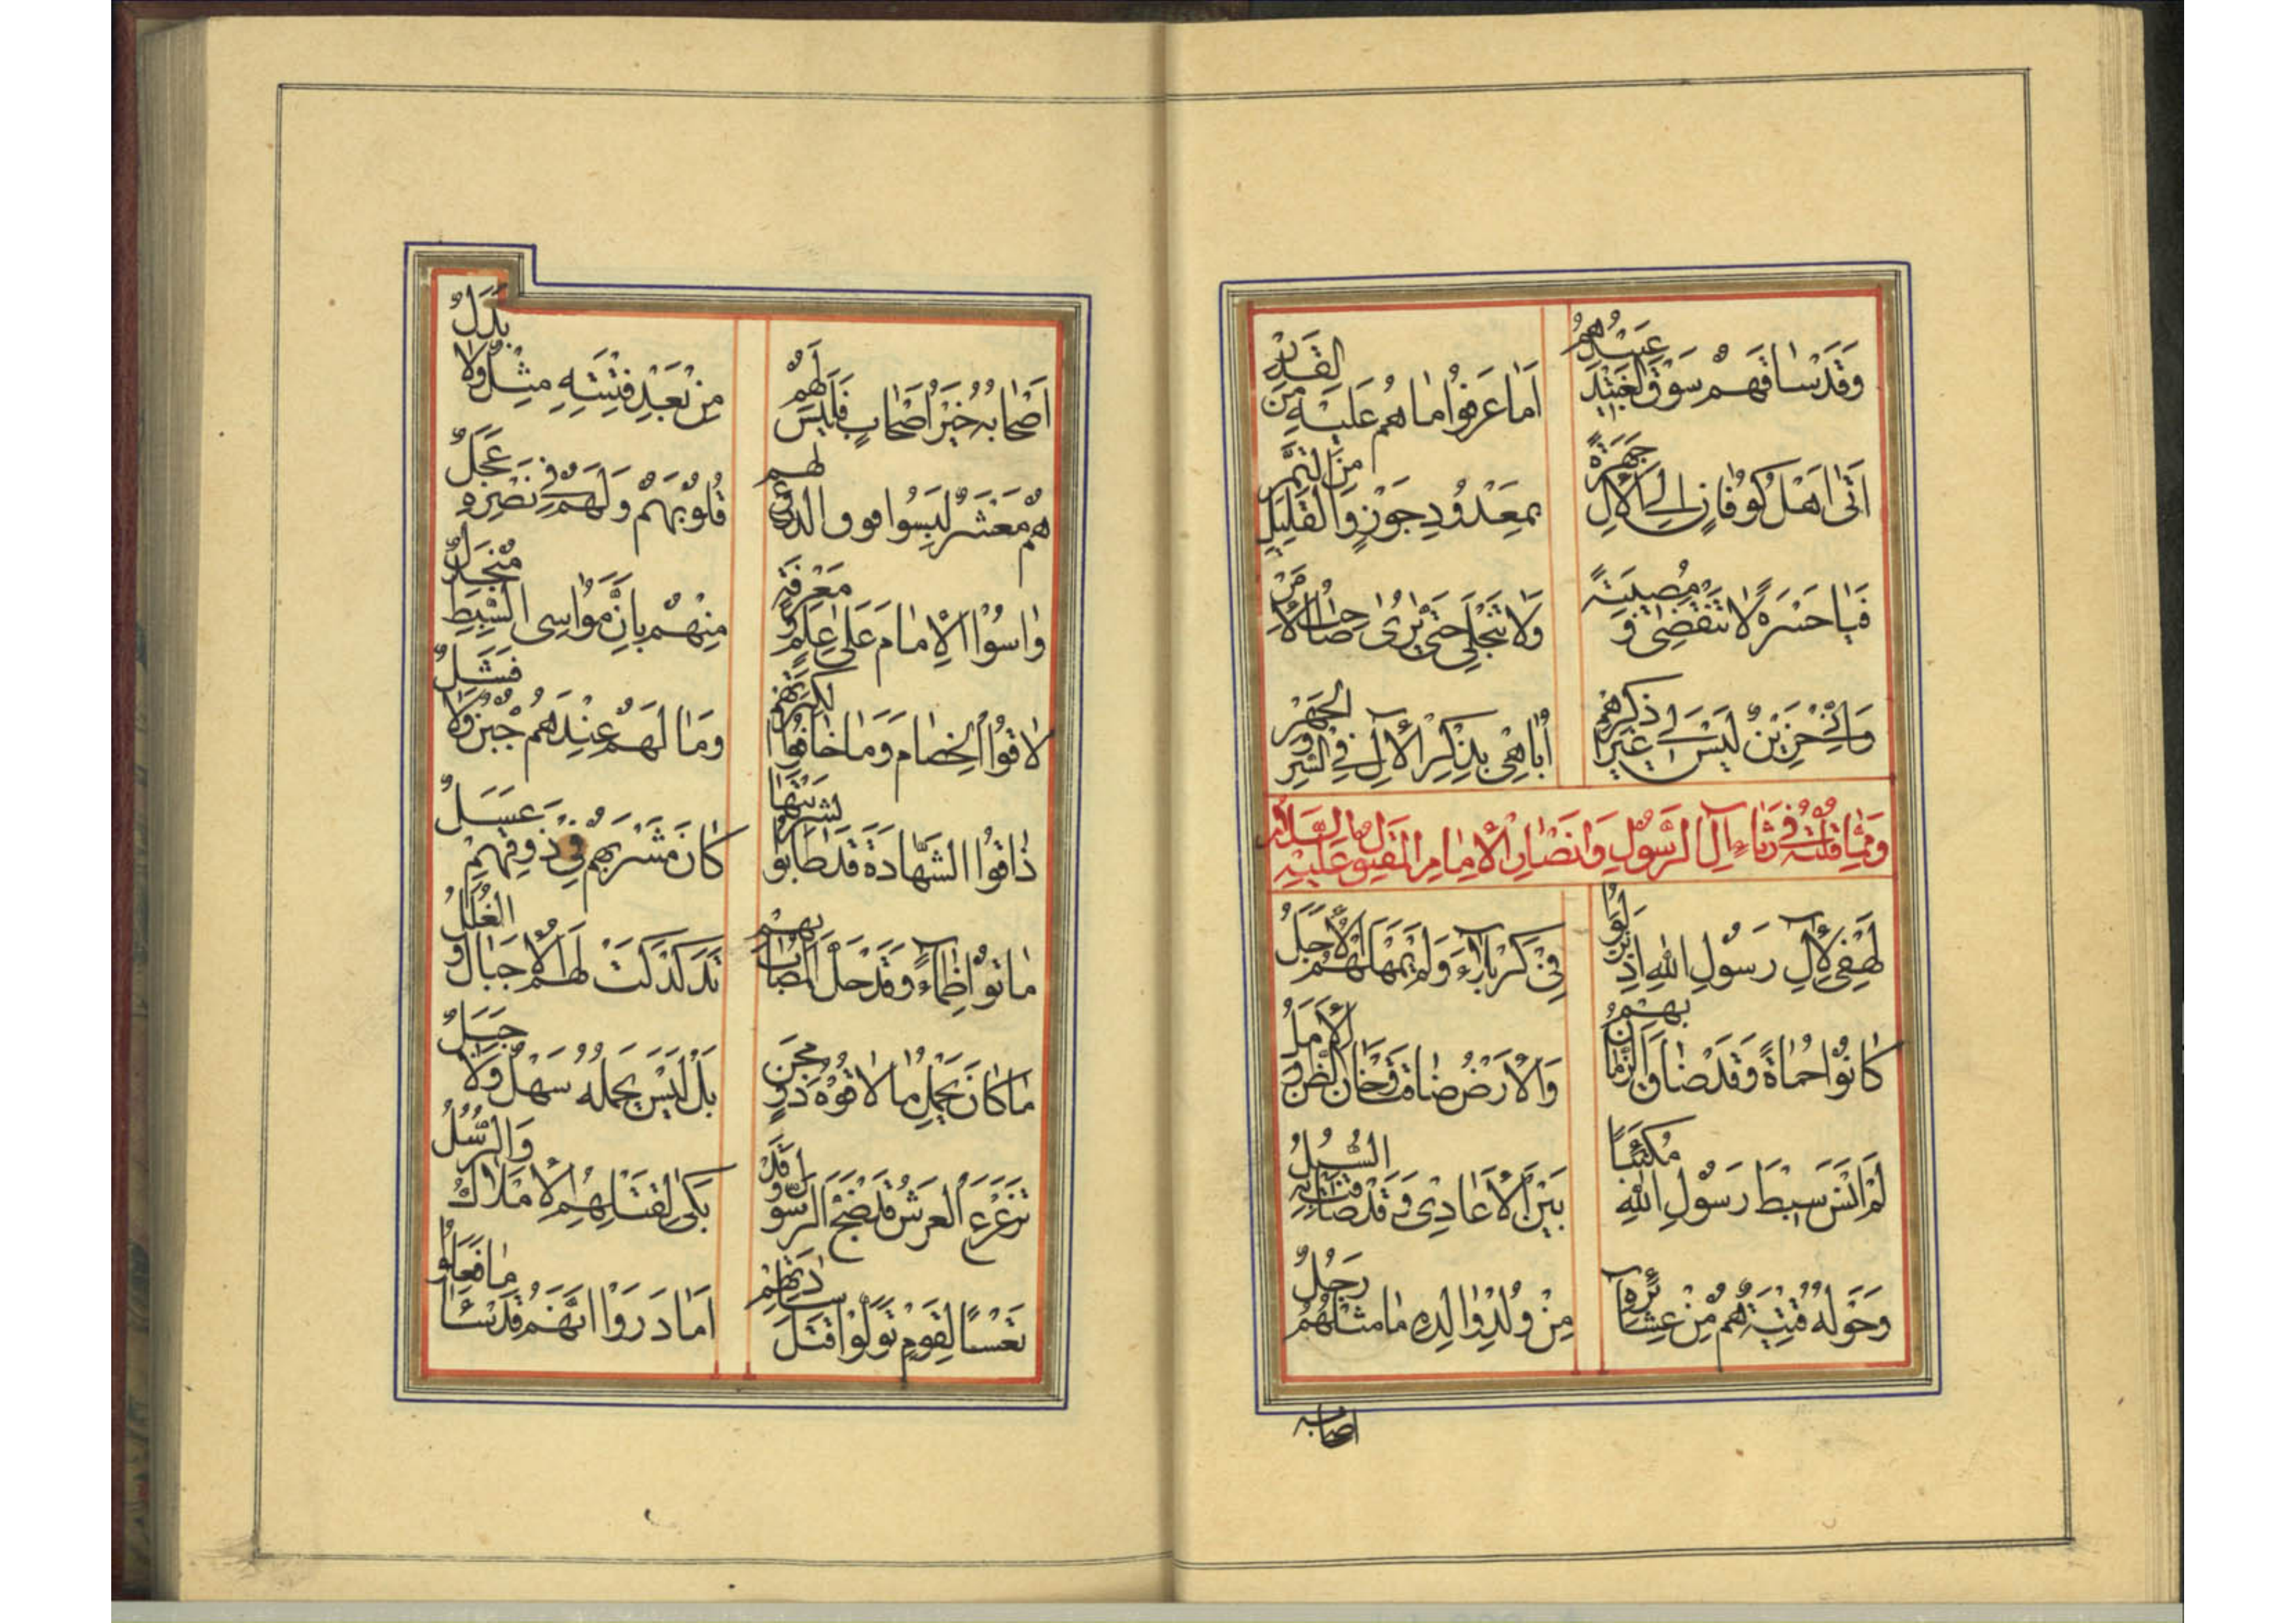 وَقَدْ سٰاقَهُمْ سَوْقَ الْعَبْیدِ عَبیٖدُهُمُ
اَمٰا عَرَفُوا مٰا هُم عَلَیْهِ مِنَ الْقَدْرِ
اَتیٰ اَهْلُ كُوفٰانٍ اِلَی الْاٰلِ جَهْرَةً
بِمَعْدُودِ جَوْزٍ وَالْقَلیٖلِ مِنَ التَّمْرِ
فَیٰا حَسْرَةً لٰا تَنْقَضیٖ وَ مُصیٖبَةً
وَلٰا تَنْجَلیٖ حَتّیٰ یُریٰ صٰاحِبُ الْاَمْرِ
وَاِنّیٖ حَزیٖنٌ لَیْسَ لیٖ غَیْرُ ذِكْرِهِمْ
اُبٰاهیٖ بِذِكْرِ الْاٰلِ فِی السِّرِّ وَ الْجَهْرِ
وَ مِمّٰا قُلْتُهُ فیٖ رَثٰاءِ اٰلِ الرَّسُولِ وَ اَنْصٰارِ الْاِمٰامِ الْمَقْتُولِ عَلَیْهِ السَّلٰامُ
لَهْفیٖ لِاٰلِ رَسُولِ اللّٰهِ اِذْ نَزَلُوا
فیٖ كَرْبَلٰاءَ وَ لَمْ یُمْهِلْهُمُ الْاَجَلُ
كٰانُوا حُمٰاةً وَ قَدْ ضٰاقَ الزَّمٰانُ بِهِمْ
وَالْاَرْضُ ضٰاقَتْ وَ خٰانَ الظَّنُّ وَ الْاَمَلُ
لَمْ اَنْسَ سِبْطَ رَسُولِ اللّٰهِ مُكْتَئِبًا
بَیْنَ الْاَعٰادیٖ وَ قَدْ ضٰاقَتْ بِهِ السُّبُلُ
وَ حَوْلَهُ فِتْیَةٌ هُمْ مِنْ عَشٰائِرِهٖ
مِنْ وُلْدِ وٰالِدِهٖ مٰا مِثْلُهُمْ رَجُلُ
اصحابه
اَصْحٰابُهُ خَیْرُ اَصْحٰابٍ فَلَیْسَ لَهُمْ
مِنْ بَعْدِ فِتْیَتِهٖ مِثْلٌ وَلٰا بَدَلُ
هُمْ مَعْشَرٌ لَبِسُوا فوق الدروع لهم
قُلُوبَهُمْ وَ لَهُمْ فیٖ نَصْرِهٖ عَجَلُ
وٰاسَوُا الْاِمٰامَ عَلیٰ عِلْمٍ وَ مَعْرِفَةٍ
مِنْهُمْ بِاَنَّ مُوٰاسِی السِّبْطِ
لٰاقُوا الْخِصٰامَ وَ مٰا خٰافُوا لِكَثْرَتِهِمْ
وَمٰا لَهُمْ عِنْدَهُمْ جُبْنٌ وَلٰا فَشَلُ
ذٰاقُوا الشَّهٰادَةَ قَدْ طٰابُوا لِشَرْبَتِهٰا
كٰانَ مَشْرَبُهُمْ فیٖ ذَوْقِهِمْ عَسَلُ
مٰاتُوا ظِمٰاءً وَ قَدْ حَلَّ الْمُصٰابُ بِهِمْ
تَدَكْدَكَتْ لَهُمُ الْاَجْبٰالُ وَ الْقُلَلُ
مٰا كٰانَ یَحْمِلُ مٰا لٰاقُوهُ ذُو
بَلْ لَیْسَ یَحْمِلُهُ سَهْلٌ وَلٰا جَبَلُ
تَزَعْزَعَ الْعَرْشُ قَدْ ضَجَّ الرَّسُولُ وَ قَدْ
بَكیٰ لِقَتْلِهِمُ الْاَمْلٰاكُ وَ الرُّسُلُ
تَعْسًا لِقَوْمٍ تَوَلَّوْا قَتْلَ سٰادَتِهِمْ
اَمٰا دَرَوْا اَنَّهُمْ قَدْ سٰاءَ مٰا فَعَلُوا